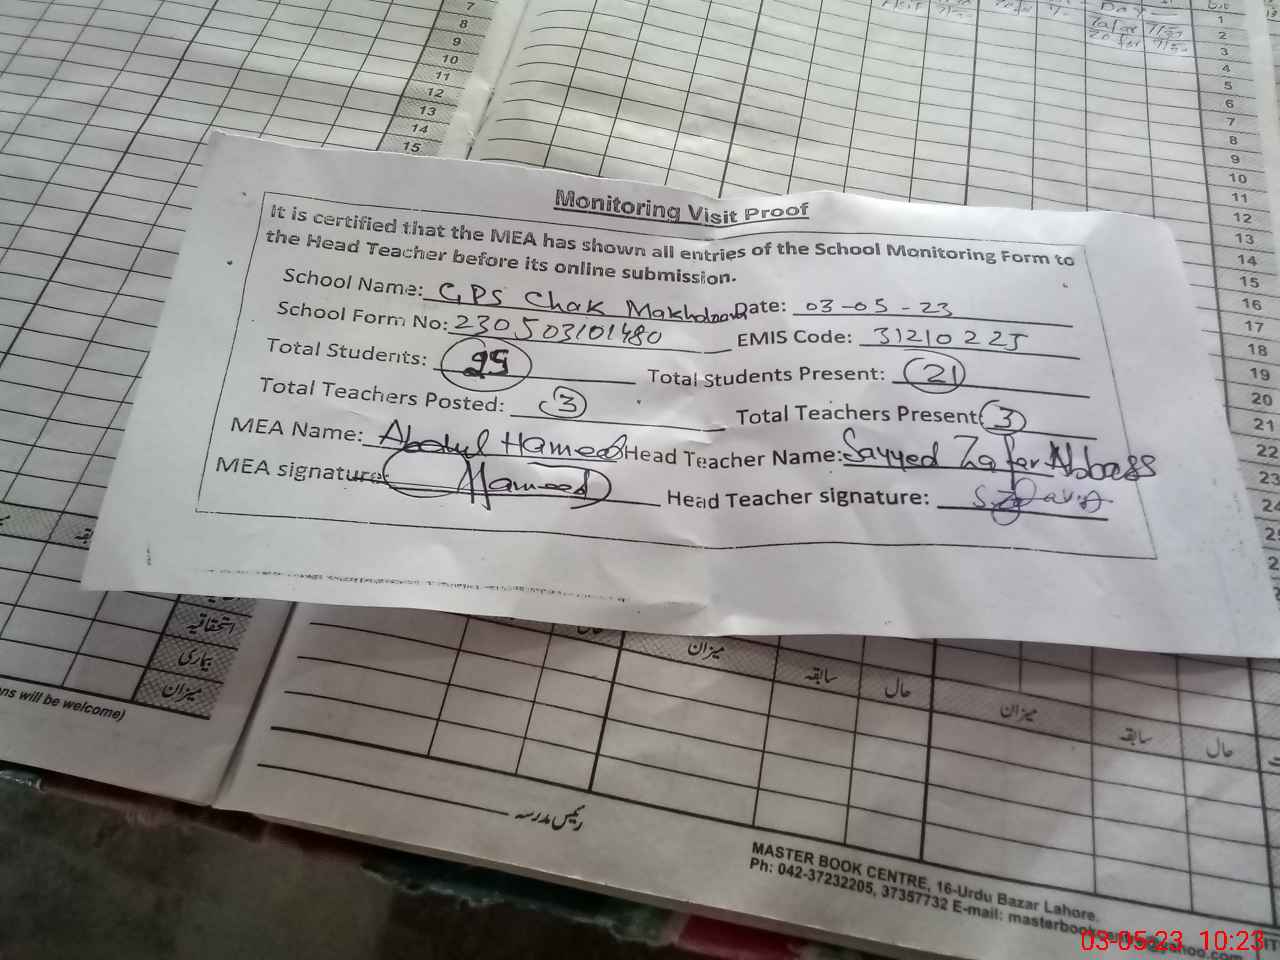 7
8
9
10
11
12
13
14
15
1
2
3
4
5
6
7
8
9
10
11
12
13
14
15
16
17
18
19
20
21
22
23
24
Zafar 7/50
Zafar 7/50
Monitoring Visit Proof
It is certified that the MEA has shown all entries of the School Monitoring Form to
the Head Teacher before its online submission.
School Name: GPS Chak Makhdoom Date: 03-05-23
School Form No: 230503101480 EMIS Code: 31210225
Total Students: Total Students Present: 21
Total Teachers Posted: 3 Total Teachers Present: 3
MEA Name: Abdul Hameed Head Teacher Name: Sayyed Zafar Abbass
MEA signature: Hameed Head Teacher signature:
استحقاقیہ
بیماری
میزان
ns will be welcome)
میزان سابقہ حال میزان سابقہ حال
رئیس مدرسہ
MASTER BOOK CENTRE, 16-Urdu Bazar Lahore.
Ph: 042-37232205, 37357732 E-mail: masterbook
03-05-23 10:23